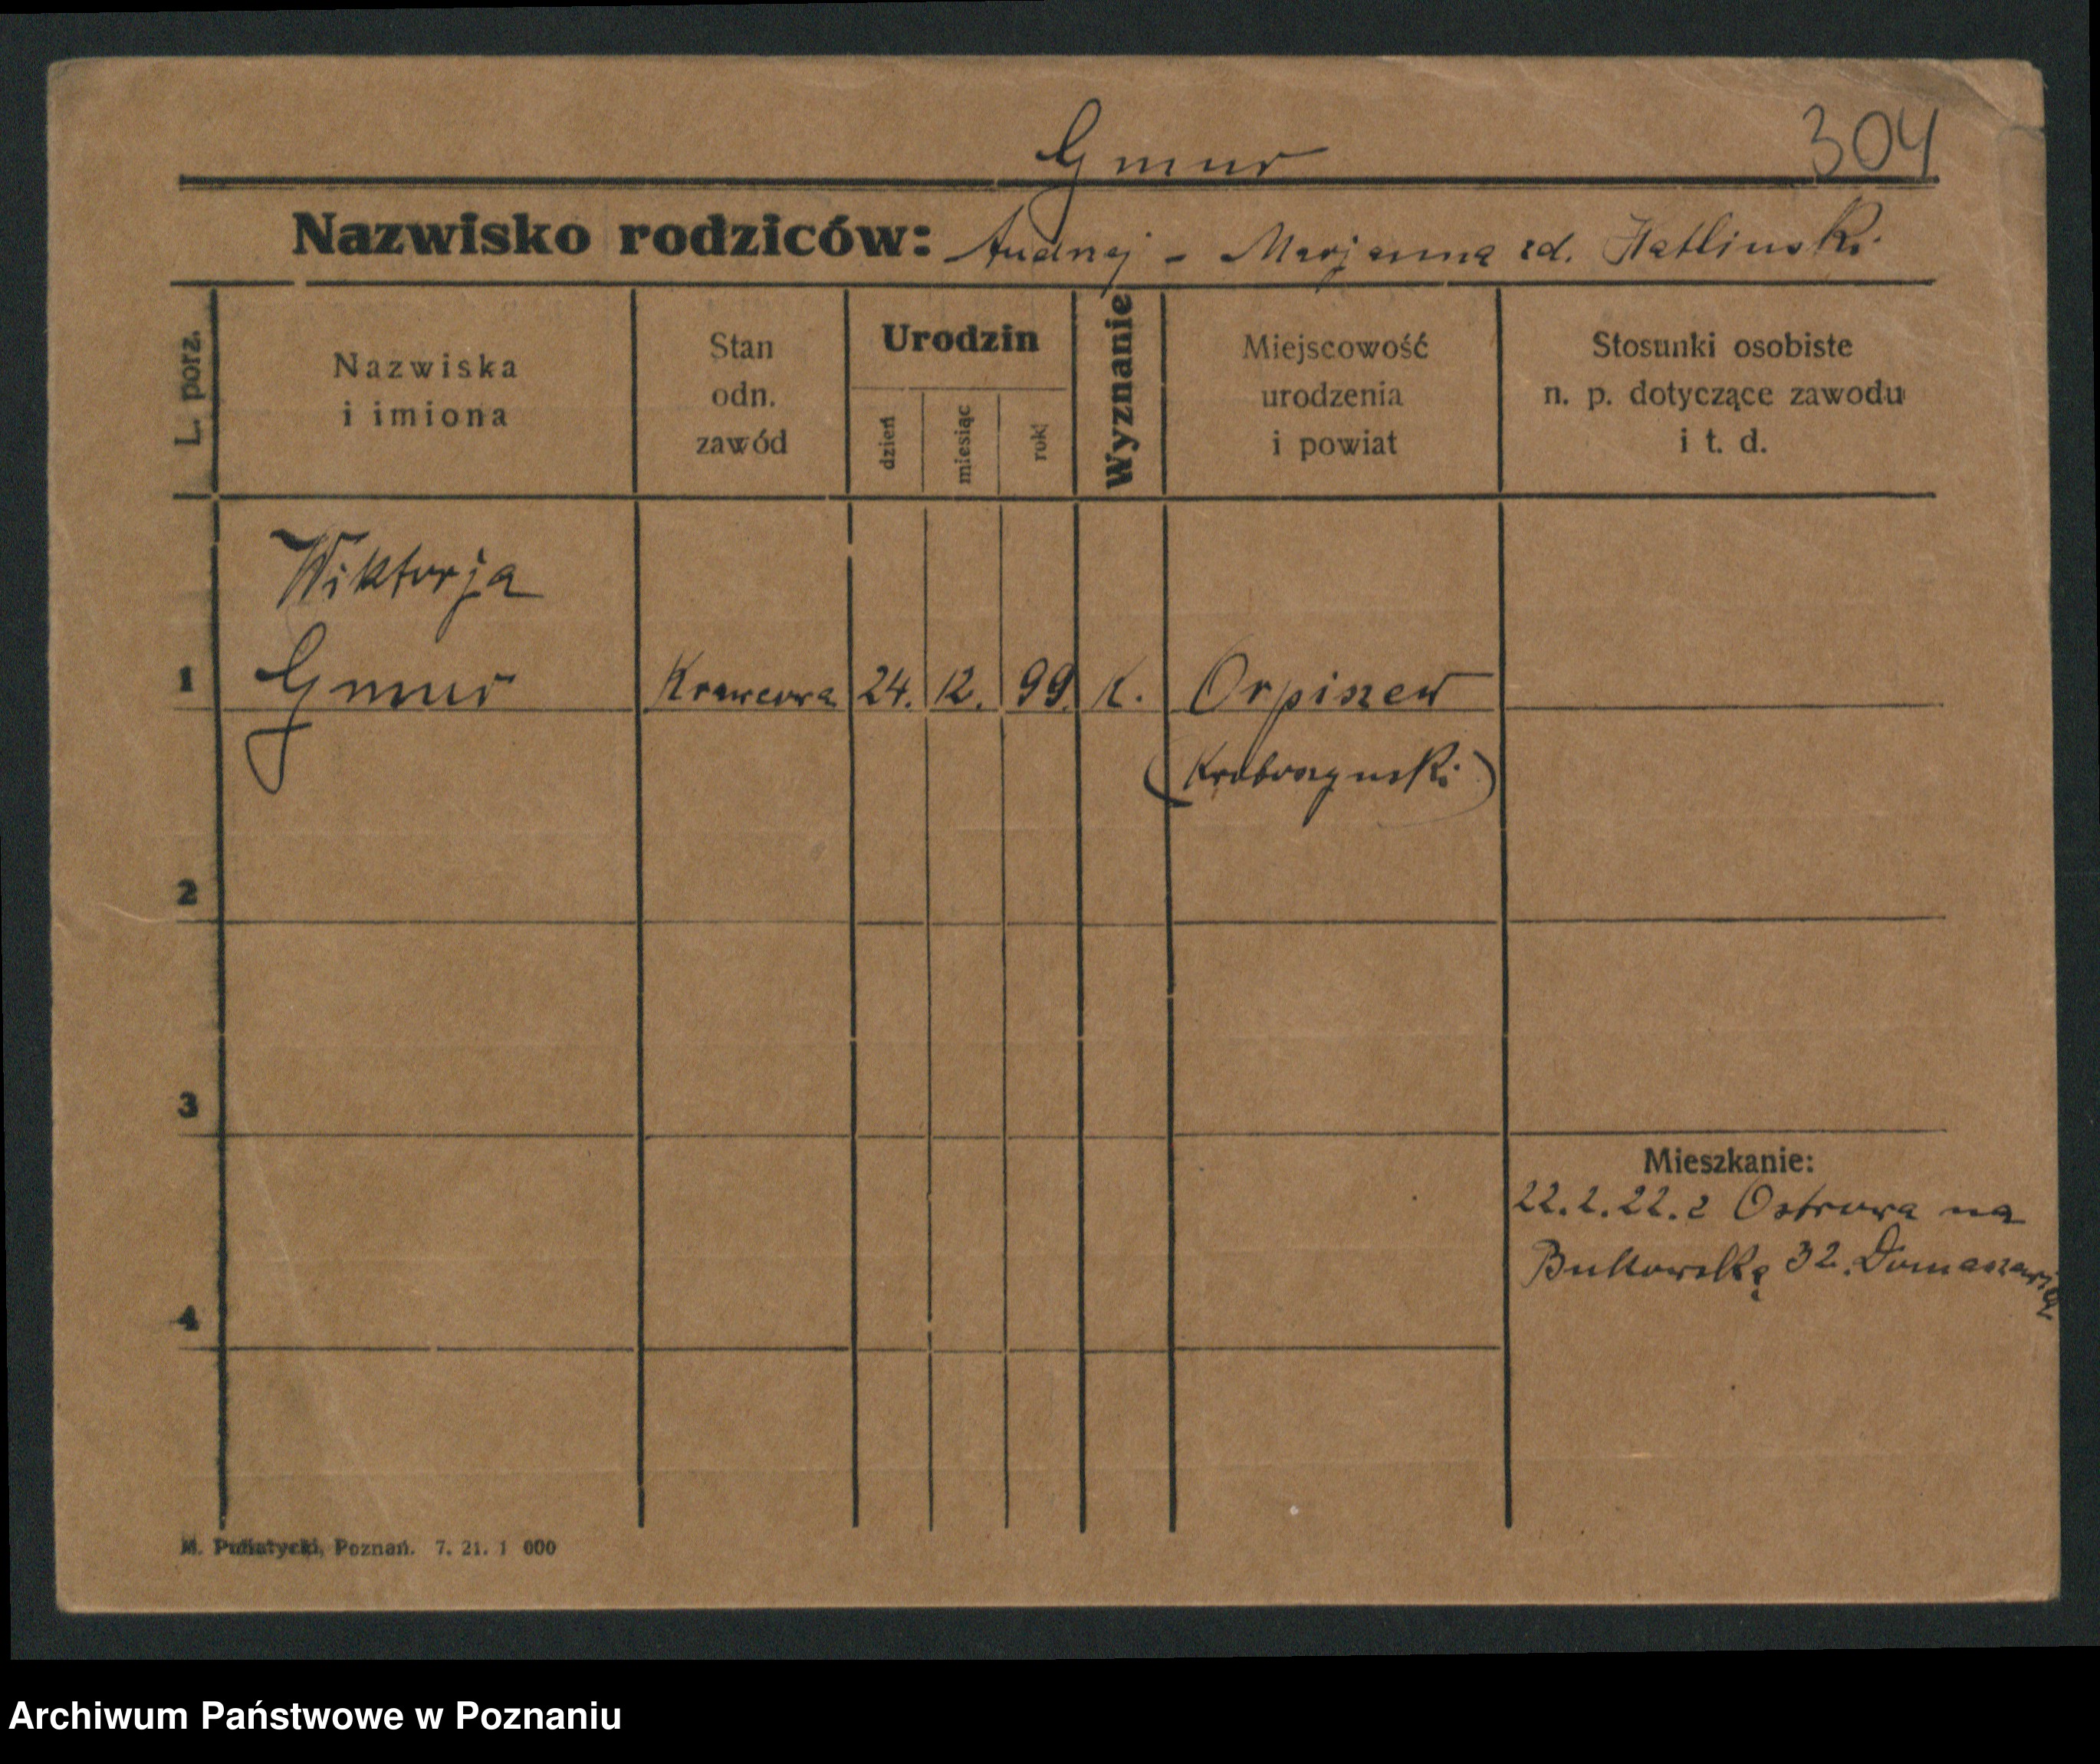 Gmur
304
Nazwisko rodziców: Andrzej - Marjanna zd. Hatlinski
L. porz.
Nazwiska i imiona
Stan odn. zawód
Urodzin
dzień
miesiąc
rok
Wyznanie
Miejscowość urodzenia i powiat
Stosunki osobiste n. p. dotyczące zawodu i t. d.
Wiktorja
1 Gmur Krawcowa 24. 12. 99. K. Orpiszew
(Krotoszynski)
2
3
Mieszkanie:
22.2.22. z Ostrowa na
Bukowską 32. Domaszewicz
4
Poznań. 7. 21. 1 000
Archiwum Państwowe w Poznaniu